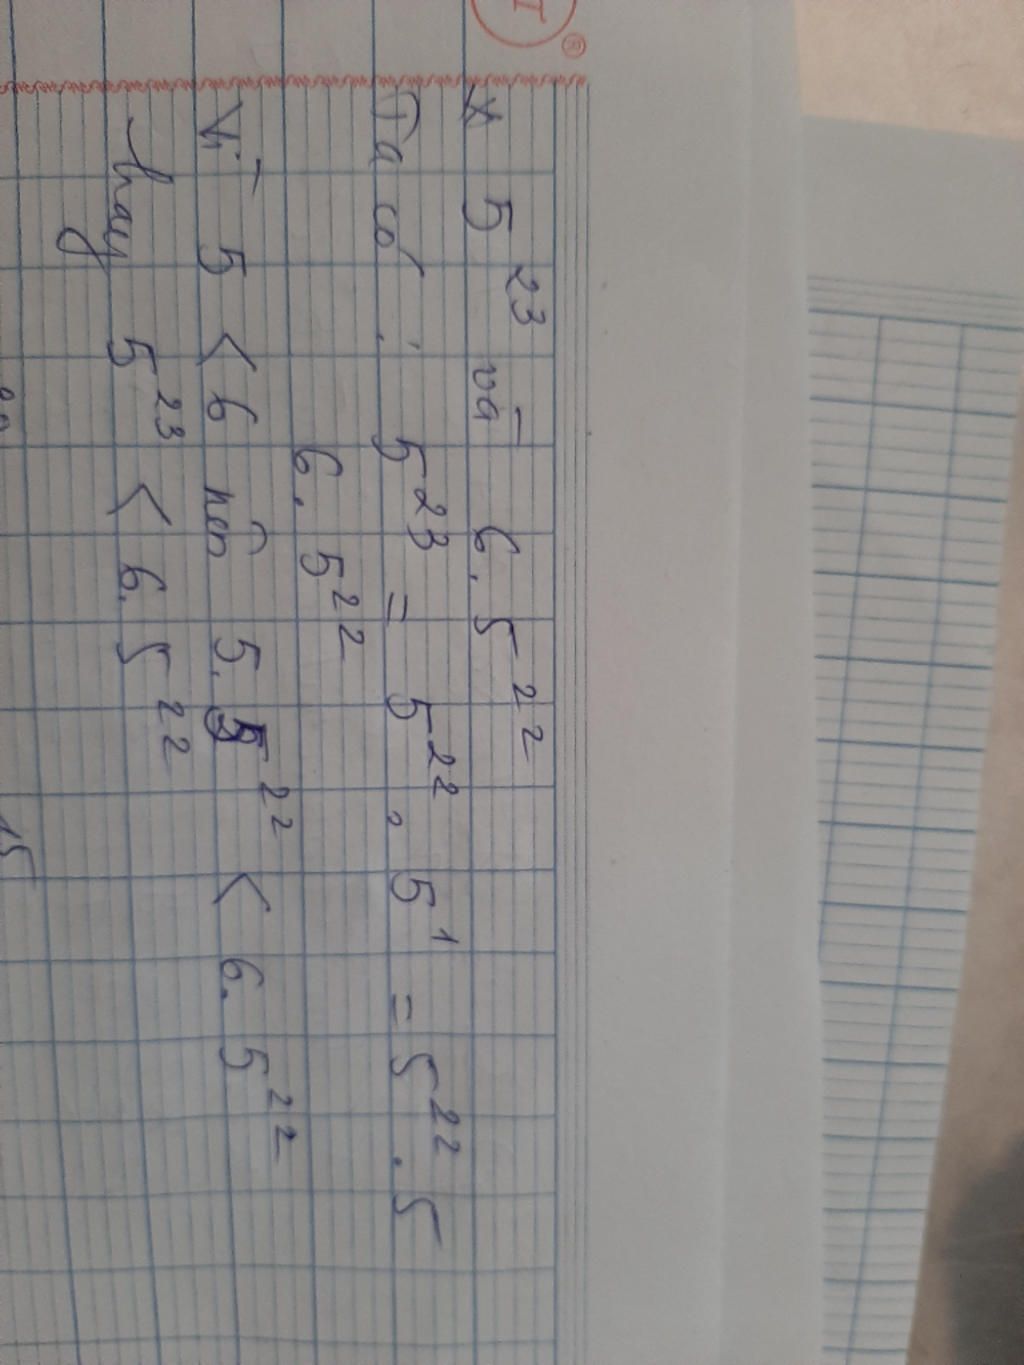 * 5²³ và 6.5²²
Ta có : 5²³ = 5²² . 5¹ = 5²² . 5
6. 5²²
Vì 5 < 6 nên 5.5²² < 6. 5²²
hay 5²³ < 6. 5²²
15